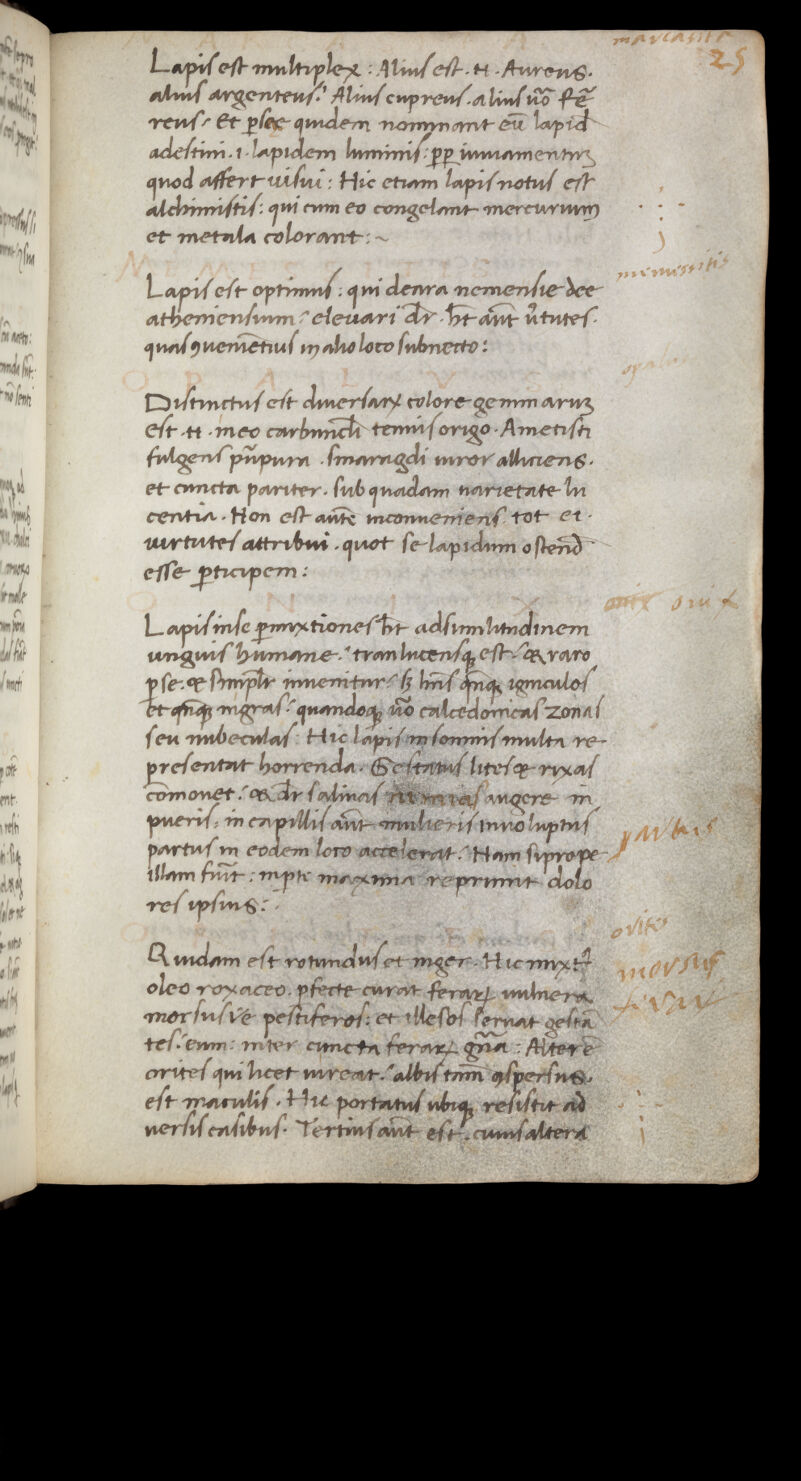 marcasita
25
Lapis est multiplex : Alius est . n . Aureus .
alius argenteus . Alius cupreus . alius uo̅ Fe̅
reus / Et perse quidem nominant eu̅ lapid
adestini . i . lapidem luminis : pp iuuamentuꝫ
quod affert uisui : Hic etiam lapis notus est
alchimistis : qui cum eo congelant mercurium
et metala colorant : ~
Lapis est optimus : qui de ara nemensie dee
atheniensium / eleuari dr̅ . ht̅ aut̅ u̅tutes .
quas ꝯuenietius in alio loco subnecto :
opalus
O P A L V S
Distinctus est diuersaꝝ colore gemmaruꝫ
Est . n . in eo carbuncli tenuis origo . Ametisti
fulgens purpura . smaragdi uiror alliciens .
et cuncta pariter . sub quadam uarietate lu
centia . Non est aute̅ inconueniens tot ei .
uirtutes attribui . quot se lapidum ostend
esse ꝑticipem :
onix onix
O N I X
Lapis in se ꝑmixtiones ht̅ ad similitudinem
unguis humane . tranlucensqꝫ est / & raro
ꝑ se . & simplr̅ inuenitur / sꝫ hn̅s qn̅qꝫ igniculos
et qn̅qꝫ nigras / quandoqꝫ uo̅ calcedonicas zonas
seu nubeculas : Hic lapis in somnis multa re-
presentat horrenda . Gestatus lites & rixas
co̅mouet / & dr̅ saliuas augere in
pueris : in capillis aut̅ mulieris inuoluptus
partus in eodem loco accelerat . Nam si prope
partus
illam fuit̅ : inpte maxima reprimit dolo
res ipsius :
orites
Quidam est rotundus et niger . Hic mixtꝰ
morsus
oleo roxaceo . ꝑfecte curat feraꝝ uulnera
feraꝝ
morsus ue̅ pestiferos : et illesos seruat gesta̅
tes / eum : inter cuncta feraꝝ gn̅a : Alter e̅
orites qui licet uireat / albis tam̅ ꝯspersus .
est maculis . Hic portatus ubiqꝫ resistit ad
uersis casibus . Tertius aut̅ est . cuius altera